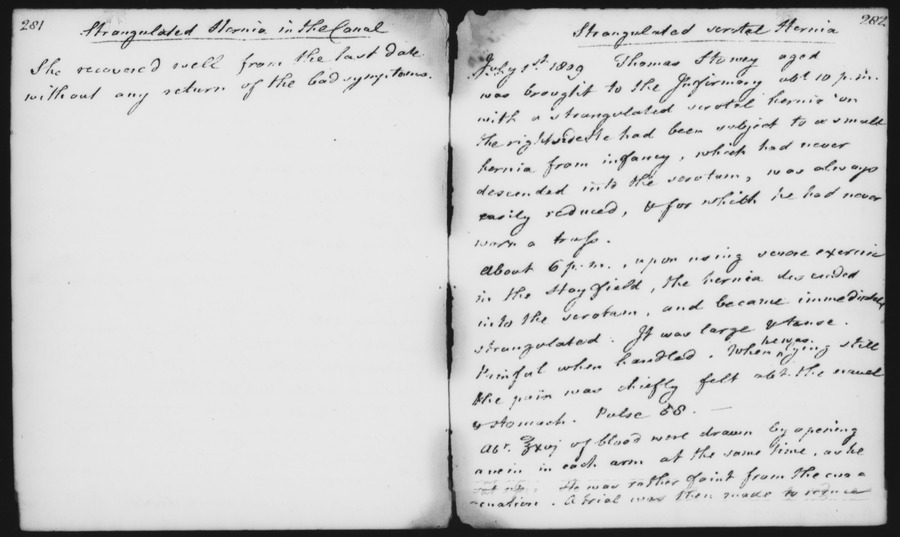 281
Strangulated Hernia in the Canal
She recovered well from the last date
without any return of the bad symptoms.
282
Strangulated scrotal Hernia
July 1st. 1809 Thomas aged
was brought to the Infirmary abt. 10 p.m.
with a strangulated scrotal hernia on
the right side. He had been subject to a small
hernia from infancy, which had never
descended into the scrotum, was always
easily reduced, & for which he had never
worn a truss.
About 6 p.m., upon using severe exercise
in the Hayfield, the hernia descended
into the scrotum, and became immediately
strangulated. It was large & tense.
Painful when handled. When he was lying still
the pain was chiefly felt abt. the navel
& stomach. Pulse 58. —
Abt. ℥xvj of blood were drawn by opening
a vein in each arm at the same time, as he
He was rather faint from the eva=
=cuation. A trial was then made to reduce